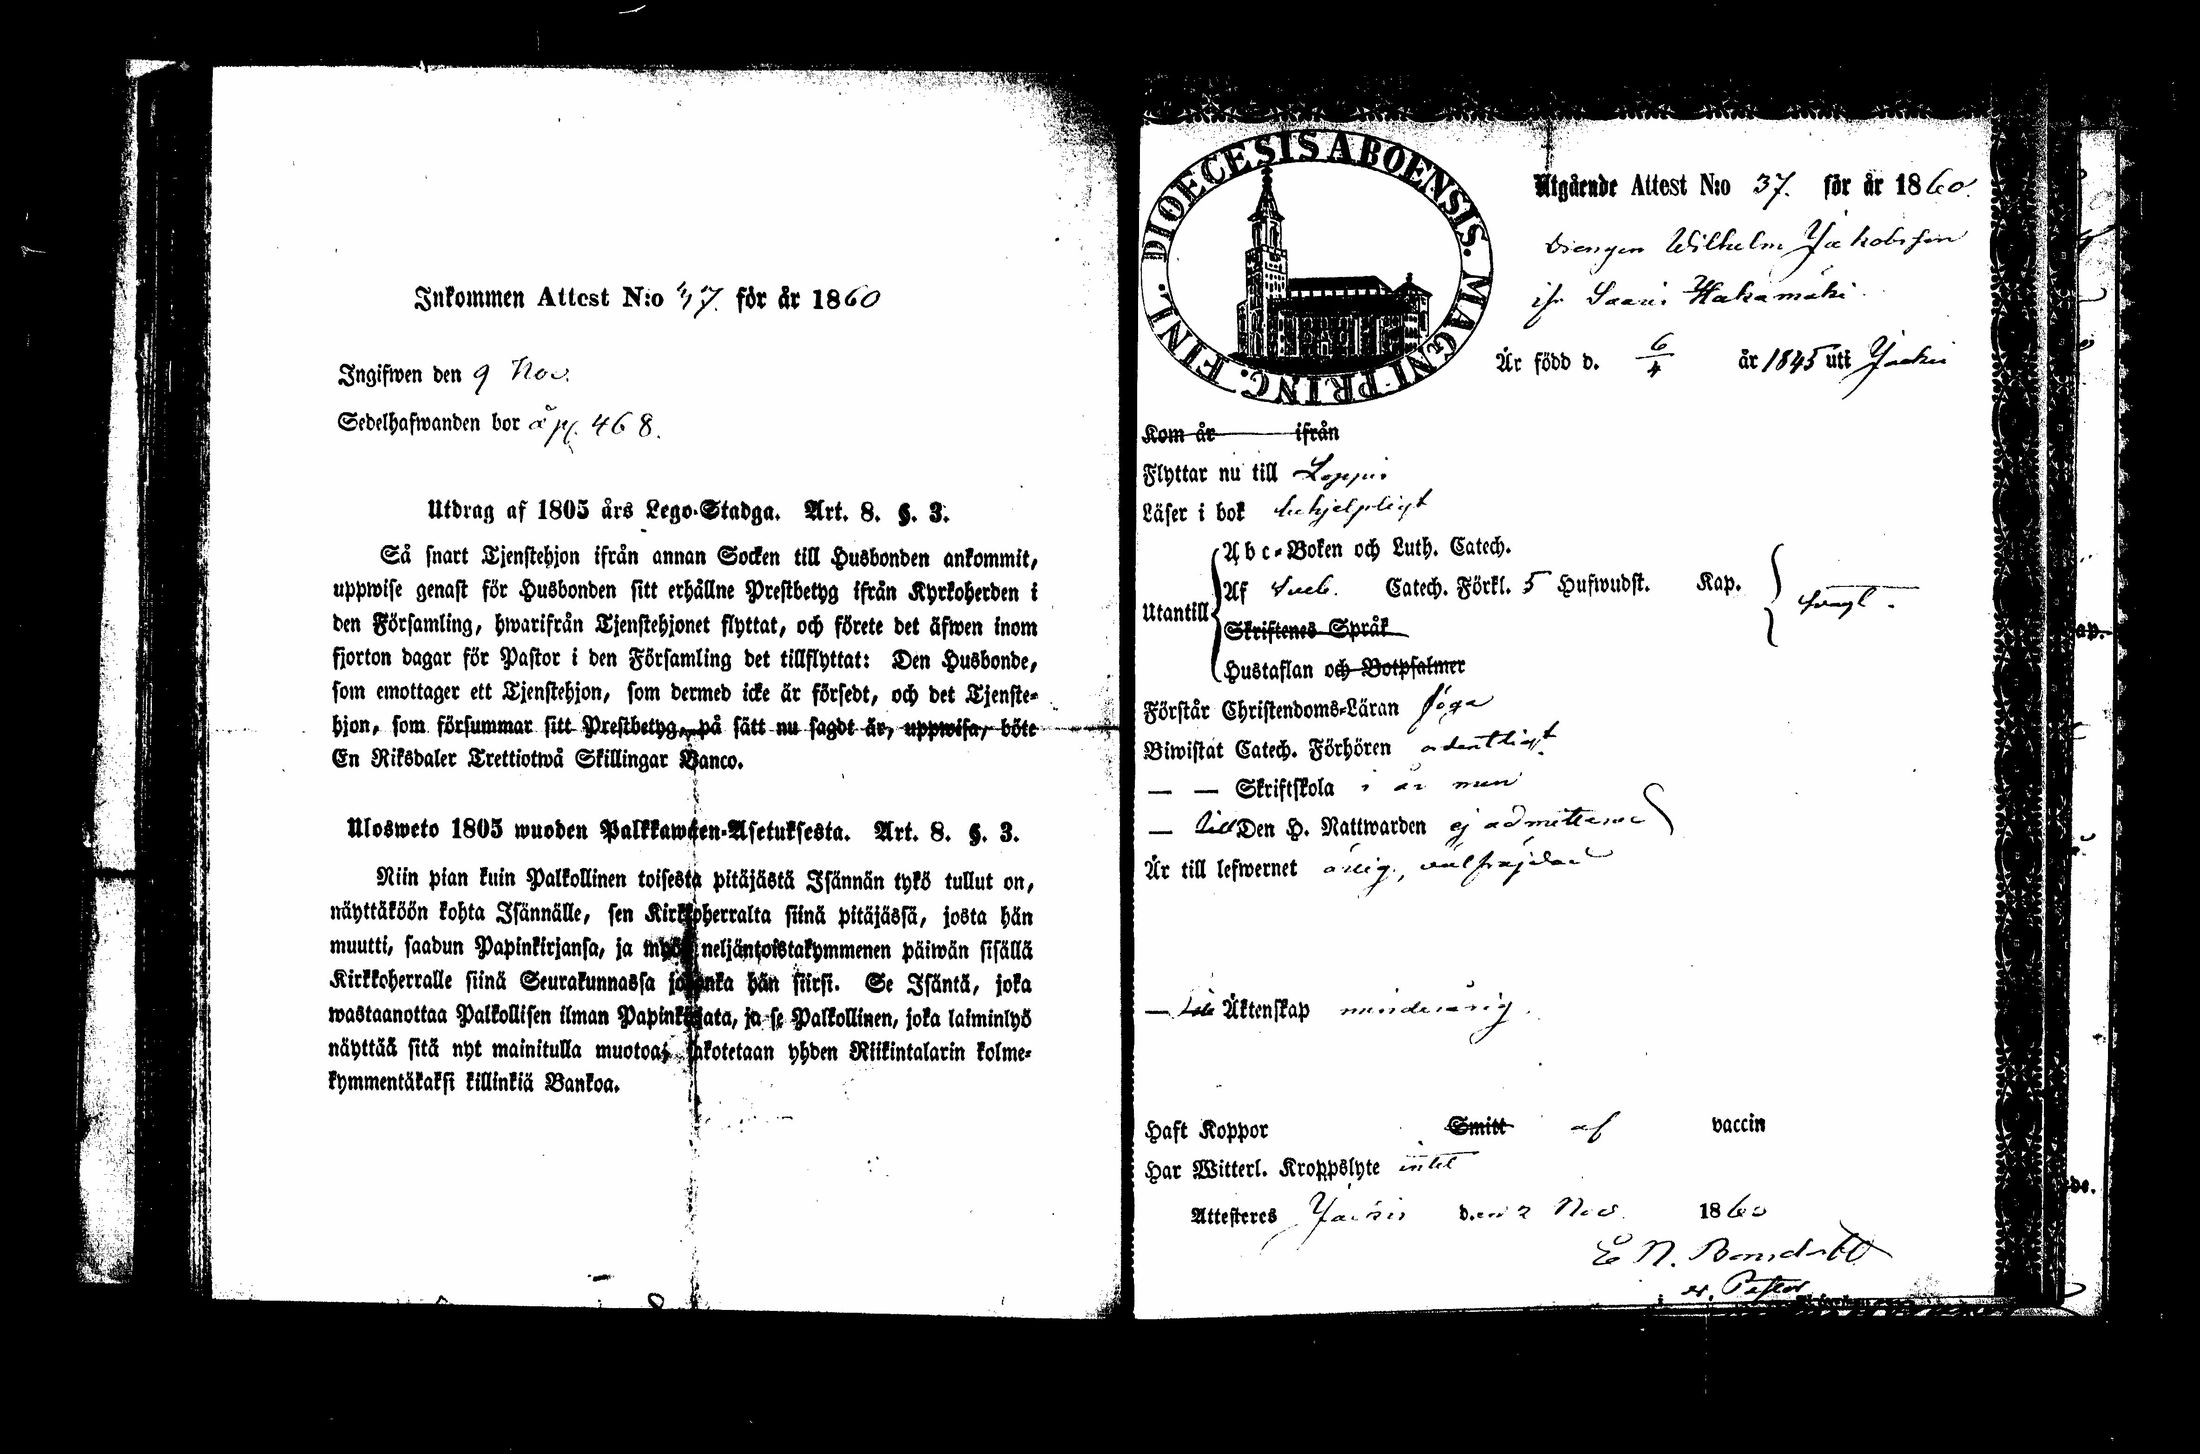 Inkommen Attest N:o 47. för år 1860
Ingifwen den 9 Nov.
Sedelhafwanden bor å p. 468.
Utdrag af 1805 års Lego-Stadga. Art. 8. §. 3.
Så snart Tjenstehjon ifrån annan Socken till Husbonden ankommit,
uppwise genast för Husbonden sitt erhållne Prestbetyg ifrån Kyrkoherden i
den Församling, hwarifrån Tjenstehjonet flyttat, och förete det äfwen inom
fjorton dagar för Pastor i den Församling det tillflyttat: Den Husbonde,
som emottager ett Tjenstehjon, som dermed icke är försedt, och det Tjenste-
hjon, som försummar sitt Prestbetyg, på sätt nu sagdt är, uppwisa, böte
En Riksdaler Trettiotwå Skillingar Banco.
Ulosweto 1805 wuoden Palkkawäen-Asetuksesta. Art. 8. §. 3.
Niin pian kuin Palkollinen toisesta pitäjästä Isännän tykö tullut on,
näyttäköön kohta Isännälle, sen Kirkkoherralta siinä pitäjässä, josta hän
muutti, saadun Papinkirjansa, ja myös neljäntoistakymmenen päiwän sisällä
Kirkkoherralle siinä Seurakunnassa johonka hän siirsi. Se Isäntä, joka
wastaanottaa Palkollisen ilman Papinkirjata, ja se Palkollinen, joka laiminlyö
näyttää sitä nyt mainitulla muotoa, sakotetaan yhden Riikintalarin kolme-
kymmentäkaksi killinkiä Bankoa.
DIOECESIS ABOENSIS. MAGNI PRINC. FINL.
Utgående Attest N:o 37. för år 1860.
Drengen Wilhelm Jakobsson
ifr. Saari Hakamäki.
Är född d. 6/4 år 1845 uti Jockis
Kom år ifrån
Flyttar nu till Loppis
Läser i bok behjelpligt
Abc-Boken och Luth. Catech.
Utantill Af Sveb. Catech. Förkl. 5 Hufwudst. Kap. svagt.
Skriftenes Språk
Hustaflan och Botpsalmer
Förstår Christendoms-Läran föga
Biwistat Catech. Förhören ordentligt
— — Skriftskola i år men
— till Den H. Nattwarden ej admitterad
Är till lefwernet ärlig, välfrejdad
— till Äktenskap minderårig.
Haft Koppor Smitt af vaccin
Har Witterl. Kroppslyte intet
Attesteras Jockis den 2 Nov. 1860
E N. Bonsdorff